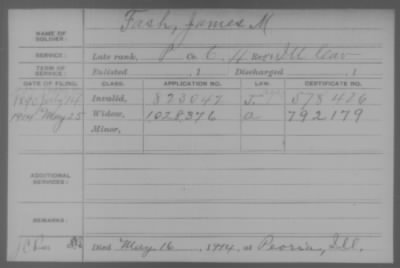 Fash, James M
NAME OF SOLDIER:
SERVICE: Late rank, P Co. C, 11 Reg't Ill Cav
TERM OF SERVICE: Enlisted , 1 Discharged , 1
DATE OF FILING. CLASS. APPLICATION NO. LAW. CERTIFICATE NO.
1890 July 14 Invalid, 823047 578426
1914 May 25 Widow, 1028376 a 792179
Minor,
ADDITIONAL SERVICES:
REMARKS:
Died May 16, 1914, at Peoria, Ill.